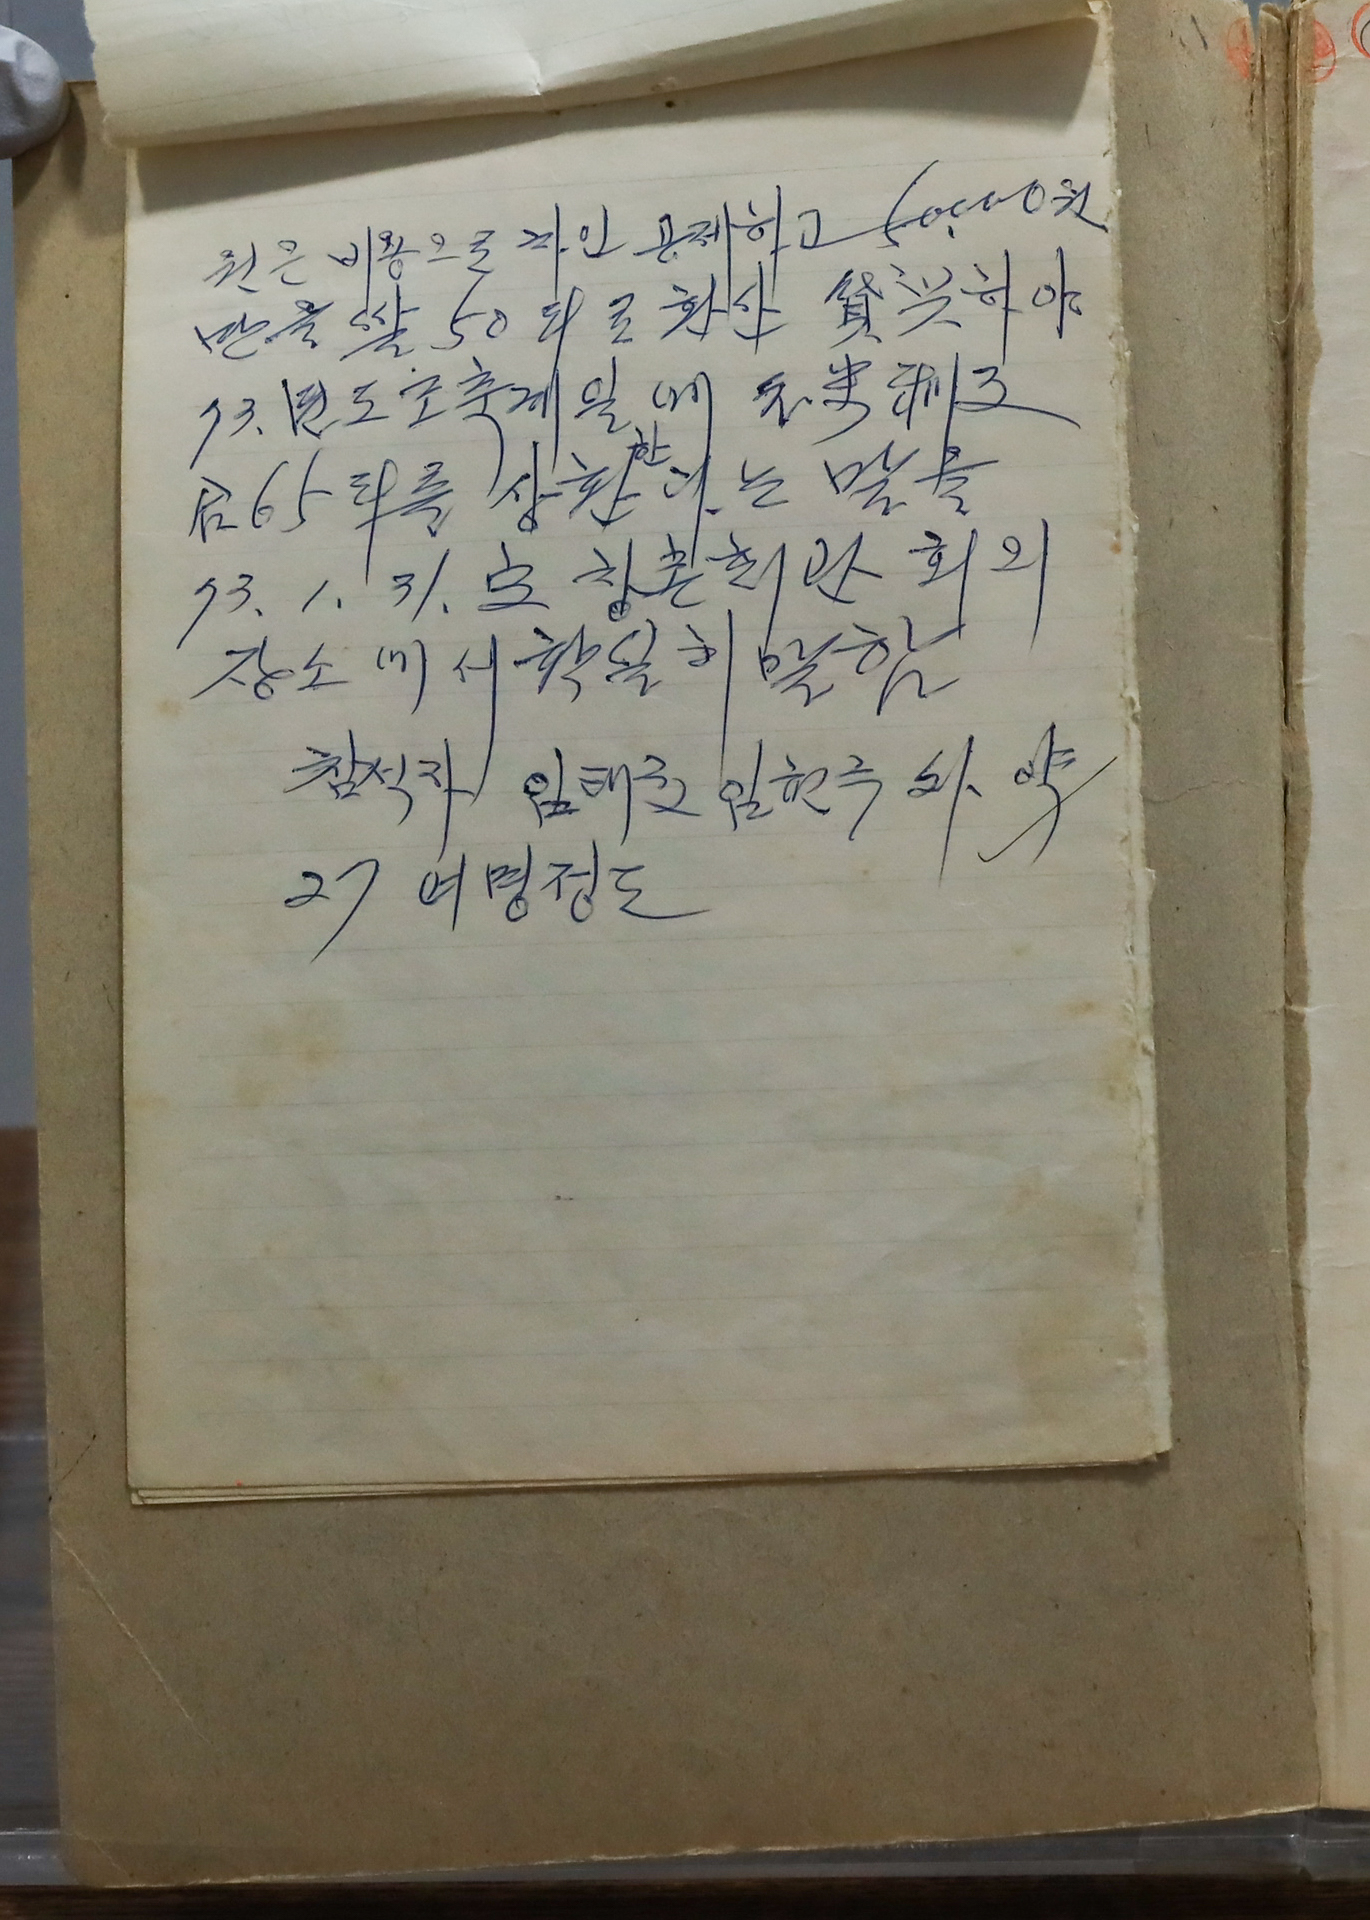 원은 비용으로 자인 공제하고 50,000원
만을 쌀 50 되로 환산 貸与하야
73. 년도 초축제일에
65되를 상환한다.는 말을
73. 1. 31. 창촌회관 회의
장소에서 확실히 말함
참석자 임태 임현수 외. 약
27 여명정도